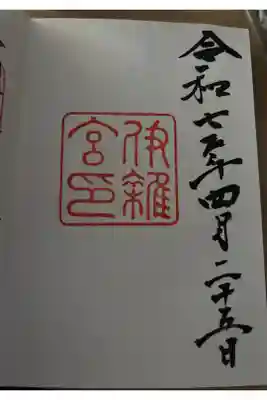 令和七年四月二十五日
伊雜
宮印